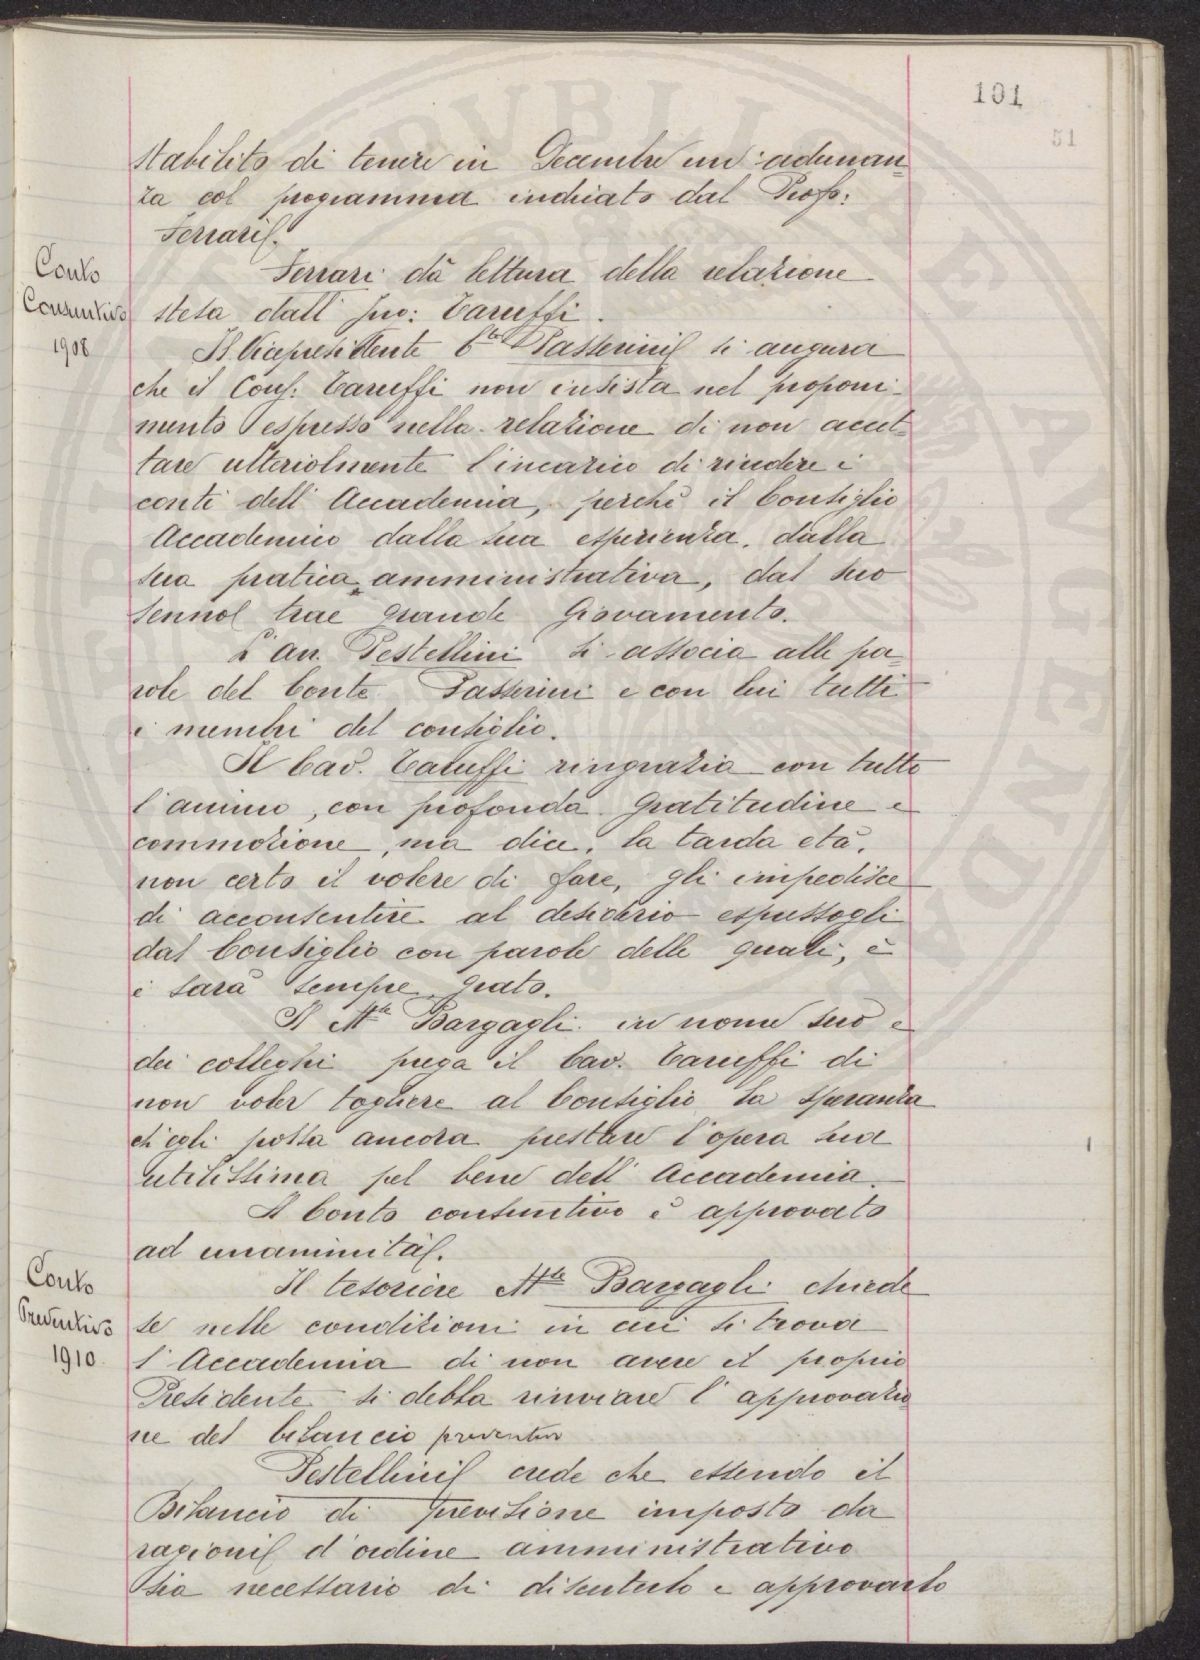 101
51
stabilito di tenere in Decembre un' adunan-
za col programma indicato dal Profs:
Ferrari.
Conto
Consuntivo
1908
Ferrari dà lettura della relazione
stesa dall' Taruffi.
Il Vicepresidente Cte Passerini si augura
che il Cons: Taruffi non insista nel proponi-
mento espresso nella relazione di non accet-
tare ulteriolmente l'incarico di rivedere i
conti dell' Accademia, perchè il Consiglio
Accademico dalla sua esperienza, dalla
sua pratica amministrativa, dal suo
senno trae grande giovamento.
L'an. Pestellini si associa alle pa-
role del Conte Passerini e con lui tutti
i membri del consiglio.
Il Cav. Taruffi ringrazia con tutto
l'animo, con profonda gratitudine e
commozione, ma dice, la tarda età,
non certo il volere di fare, gli impedisce
di acconsentire al desiderio espressogli
dal Consiglio con parole delle quali, è
e sarà sempre grato.
Il Mse Bargagli in nome suo e
dei colleghi prega il Cav. Taruffi di
non voler togliere al Consiglio la speranza
ch'egli possa ancora prestare l'opera sua
utilissima pel bene dell' Accademia.
Il Conto consuntivo è approvato
ad unaminità.
Conto
Preventivo
1910.
Il tesoriere Mse Bargagli chiede
se nelle condizioni in cui si trova
l'Accademia di non avere il proprio
Presidente si debba rinviare l'approvazio-
ne del bilancio preventivo
Pestellini crede che essendo il
Bilancio di previsione imposto da
ragioni d'ordine amministrativo
sia necessario di discuterlo e approvarlo
PUBLICE
AUGENDAE